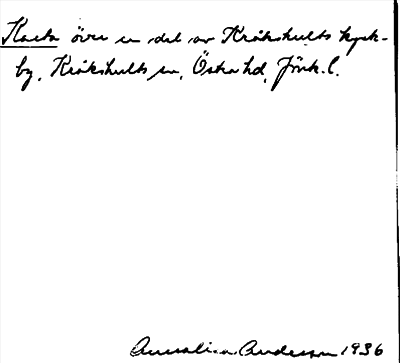 Karta över en del av Kråkshults kyrk-
by, Kråkshults sn, Östra hd, Jönk. l.
Annalisa Andersson 1936